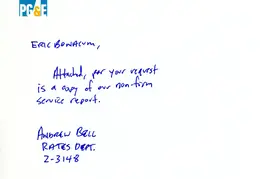 PG&E
ERIC BONACUM,
Attached, per your request
is a copy of our non-firm
service report.
ANDREW BELL
RATES DEPT.
2-3148